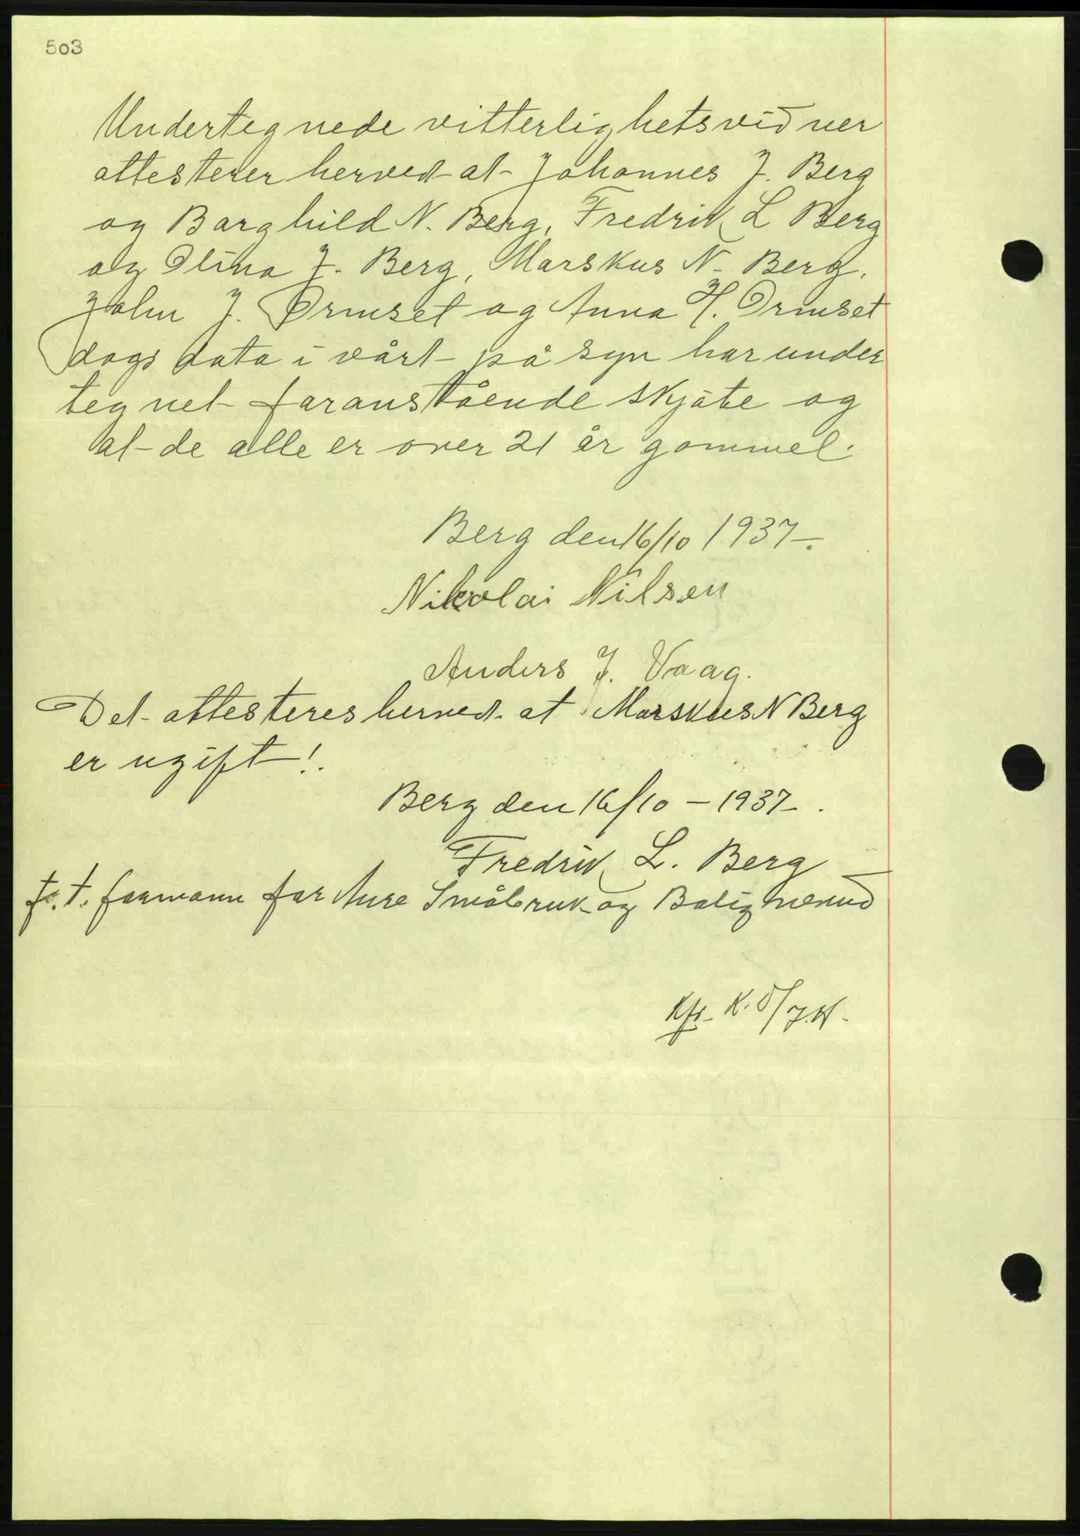 503
Undertegnede vitterlighetsvidner
attesterer herved at Johannes J. Berg
og Borghild N. Berg, Fredrik L Berg
og Olina J. Berg, Marskus N. Berg,
John J. Ormset og Anna H. Ormset
dags dato i vårt på syn har under
tegnet foranstående skjøte og
at de alle er over 21 år gammel.
Berg den 16/10 1937.
Nikolai Nilsen
Anders J. Vaag.
Det attesteres herved at Marskus N Berg
er ugift!.
Berg den 16/10 - 1937.
Fredrik L. Berg
f. t. formann for Aure Småbruk og Bolignevnd
Kfr. K.